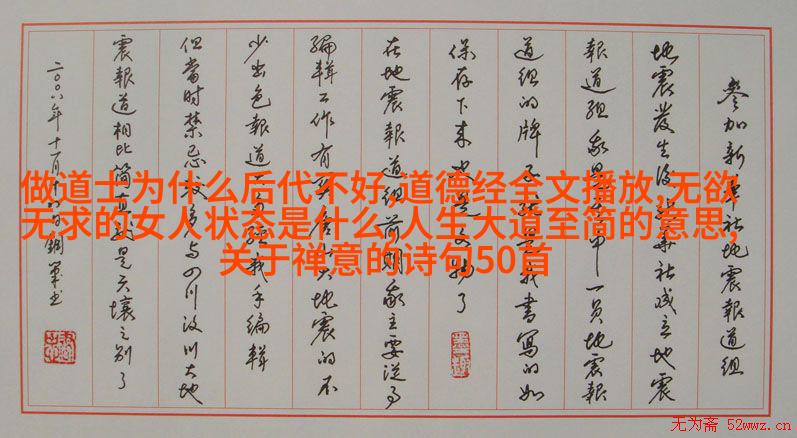 做道士为什么后代不好,道德经全文播放,无欲
无求的女人状态是什么,人生大道至简的意思,
关于禅意的诗句50首
参加新华社地震報道组
地震发生后 社成立地震
報道组 我是 中一员 地震報
道组的牌子 我書寫的 如
保存下来 文物了
在地震報道组前期 我主要从事
编辑工作 有 唐山大地震的不
少出色報道 经我手编辑
但當时禁忌较多 与四川汶川大地
震報道相比 简直 是天壤之别了
二〇〇八年十一月 日鋼笔书
无为斋 52wwz.cn